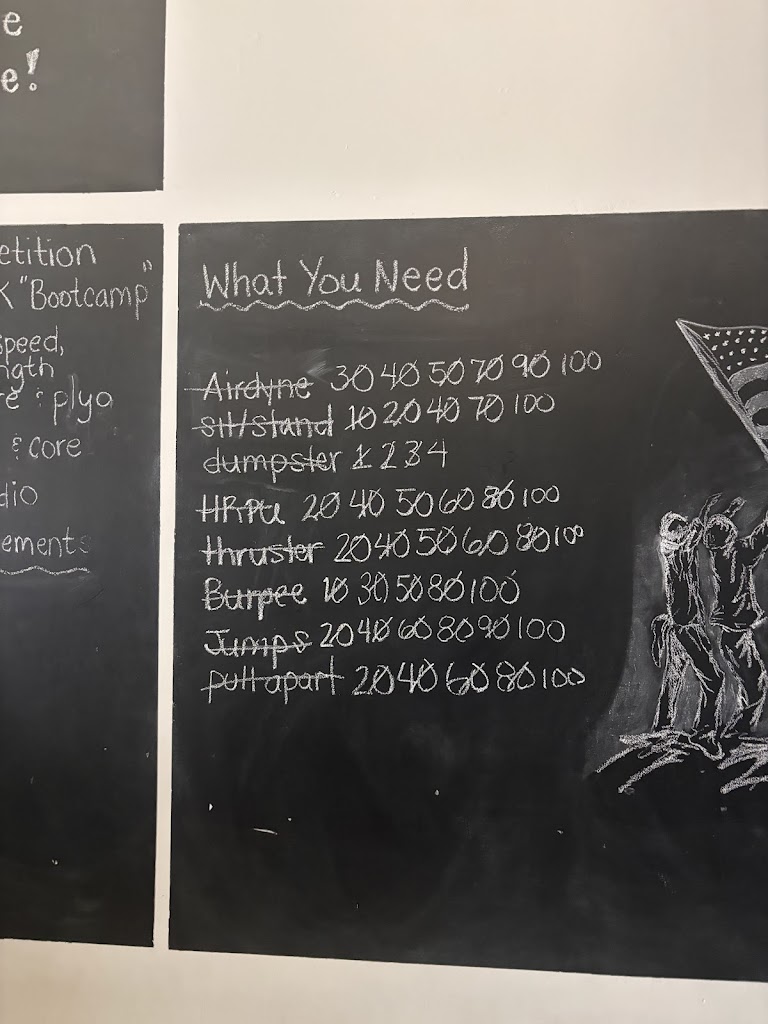 e
e!
etition
K "Bootcamp"
speed,
ngth
re & plyo
& core
dio
ements
What You Need
Airdyne 30 40 50 70 90 100
sit/stand 10 20 40 70 100
dumpster 1 2 3 4
HRPU 20 40 50 60 80 100
thruster 20 40 50 60 80 100
Burpee 10 30 50 80 100
Jumps 20 40 60 80 90 100
pull apart 20 40 60 80 100